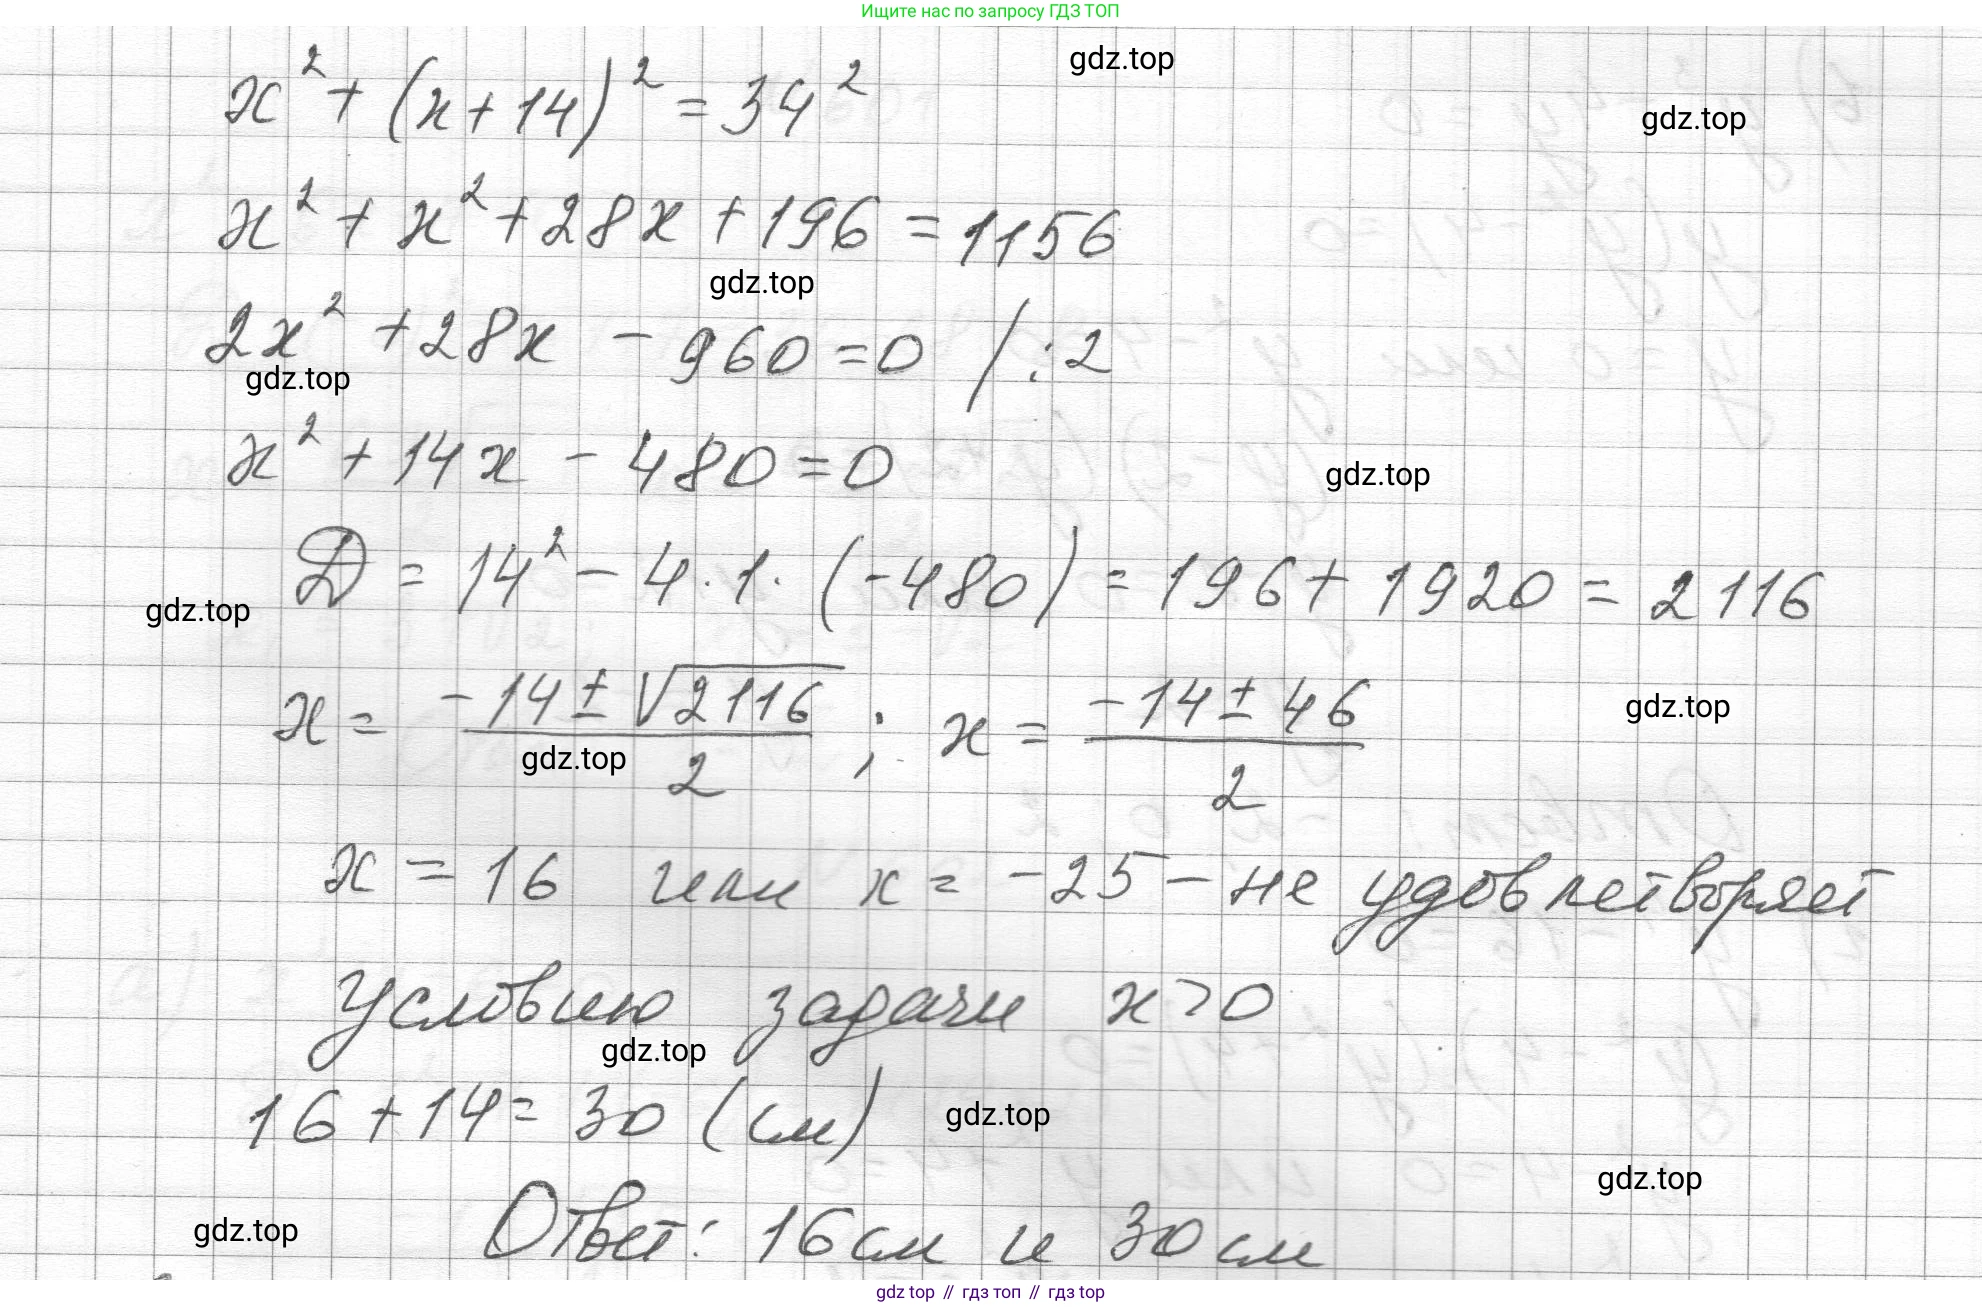 Ищите нас по запросу ГДЗ ТОП
gdz.top
x² + (x + 14)² = 34²
gdz.top
x² + x² + 28x + 196 = 1156
gdz.top
2x² + 28x - 960 = 0 / : 2
gdz.top
x² + 14x - 480 = 0
gdz.top
D = 14² - 4 · 1 · (-480) = 196 + 1920 = 2116
gdz.top
x = (-14 ± √2116) / 2 ; x = (-14 ± 46) / 2
gdz.top
gdz.top
x = 16 или x = -25 - не удовлетворяет
условию задачи x > 0
gdz.top
16 + 14 = 30 (см)
gdz.top
gdz.top
gdz.top
Ответ: 16 см и 30 см
gdz top // гдз топ // гдз top